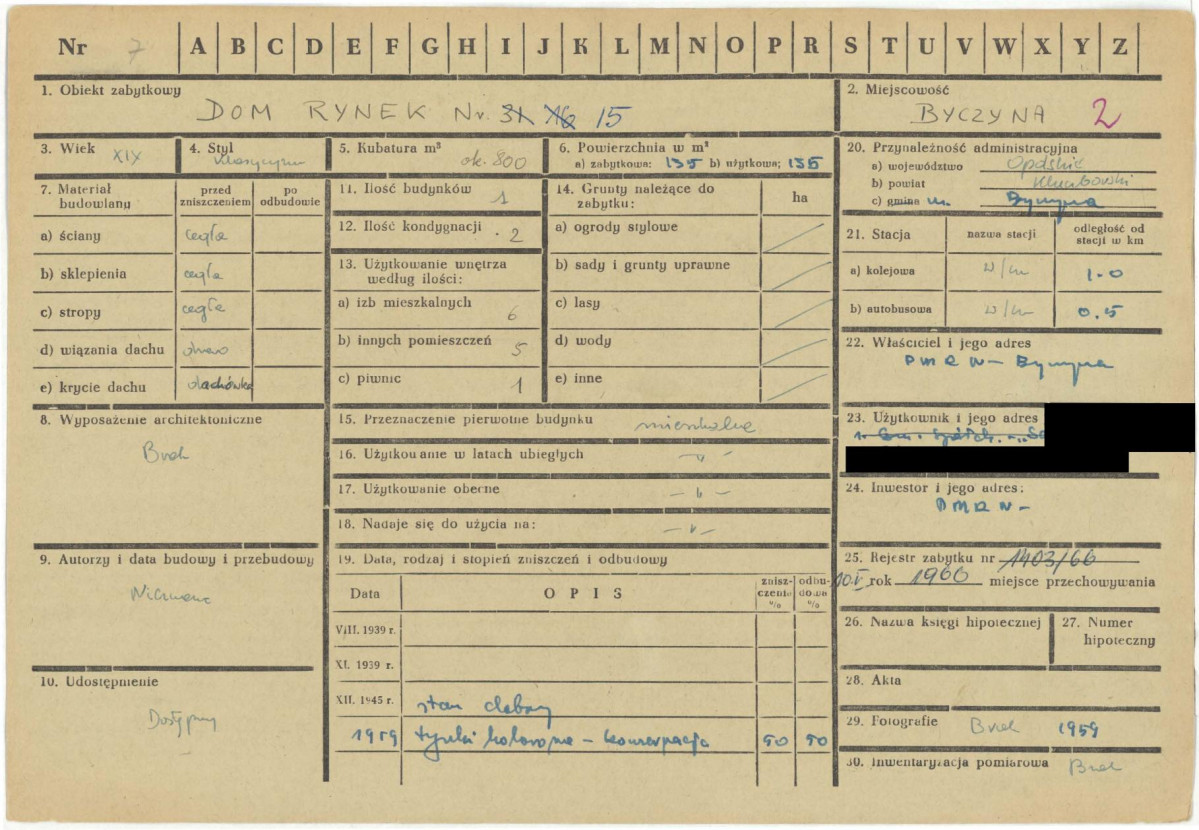 Nr 7 A B C D E F G H I J K L M N O P R S T U V W X Y Z
1. Obiekt zabytkowy
DOM RYNEK Nr. 31 16 15
2. Miejscowość
BYCZYNA 2
3. Wiek XIX
4. Styl klasycyzm
5. Kubatura m³ ok. 800
6. Powierzchnia w m²
a) zabytkowa: 135 b) użytkowa: 135
7. Materiał budowlany
przed zniszczeniem
po odbudowie
a) ściany cegła
b) sklepienia cegła
c) stropy cegła
d) wiązania dachu drewno
e) krycie dachu dachówka
8. Wyposażenie architektoniczne
Brak
9. Autorzy i data budowy i przebudowy
Nieznane
10. Udostępnienie
Dostępny
11. Ilość budynków 1
12. Ilość kondygnacji 2
13. Użytkowanie wnętrza według ilości:
a) izb mieszkalnych 6
b) innych pomieszczeń 5
c) piwnic 1
14. Grunty należące do zabytku:
ha
a) ogrody stylowe
b) sady i grunty uprawne
c) lasy
d) wody
e) inne
15. Przeznaczenie pierwotne budynku mieszkalne
16. Użytkowanie w latach ubiegłych -"-
17. Użytkowanie obecne -"-
18. Nadaje się do użycia na: -"-
19. Data, rodzaj i stopień zniszczeń i odbudowy
Data
OPIS
zniszczenia %
odbudowa %
VIII. 1939 r.
XI. 1939 r.
XII. 1945 r. stan dobry
1959 tynki kolorowe – konserwacja 50 50
20. Przynależność administracyjna
a) województwo Opolskie
b) powiat Kluczborski
c) gmina m. Byczyna
21. Stacja
nazwa stacji
odległość od stacji w km
a) kolejowa w/m 1.0
b) autobusowa w/m 0.5
22. Właściciel i jego adres
PMRN – Byczyna
23. Użytkownik i jego adres
1. Gm. Spółdz.
24. Inwestor i jego adres:
PMRN –
25. Rejestr zabytku nr 1403/66
10.V rok 1966 miejsce przechowywania
26. Nazwa księgi hipotecznej
27. Numer hipoteczny
28. Akta
29. Fotografie Brak 1959
30. Inwentaryzacja pomiarowa Brak